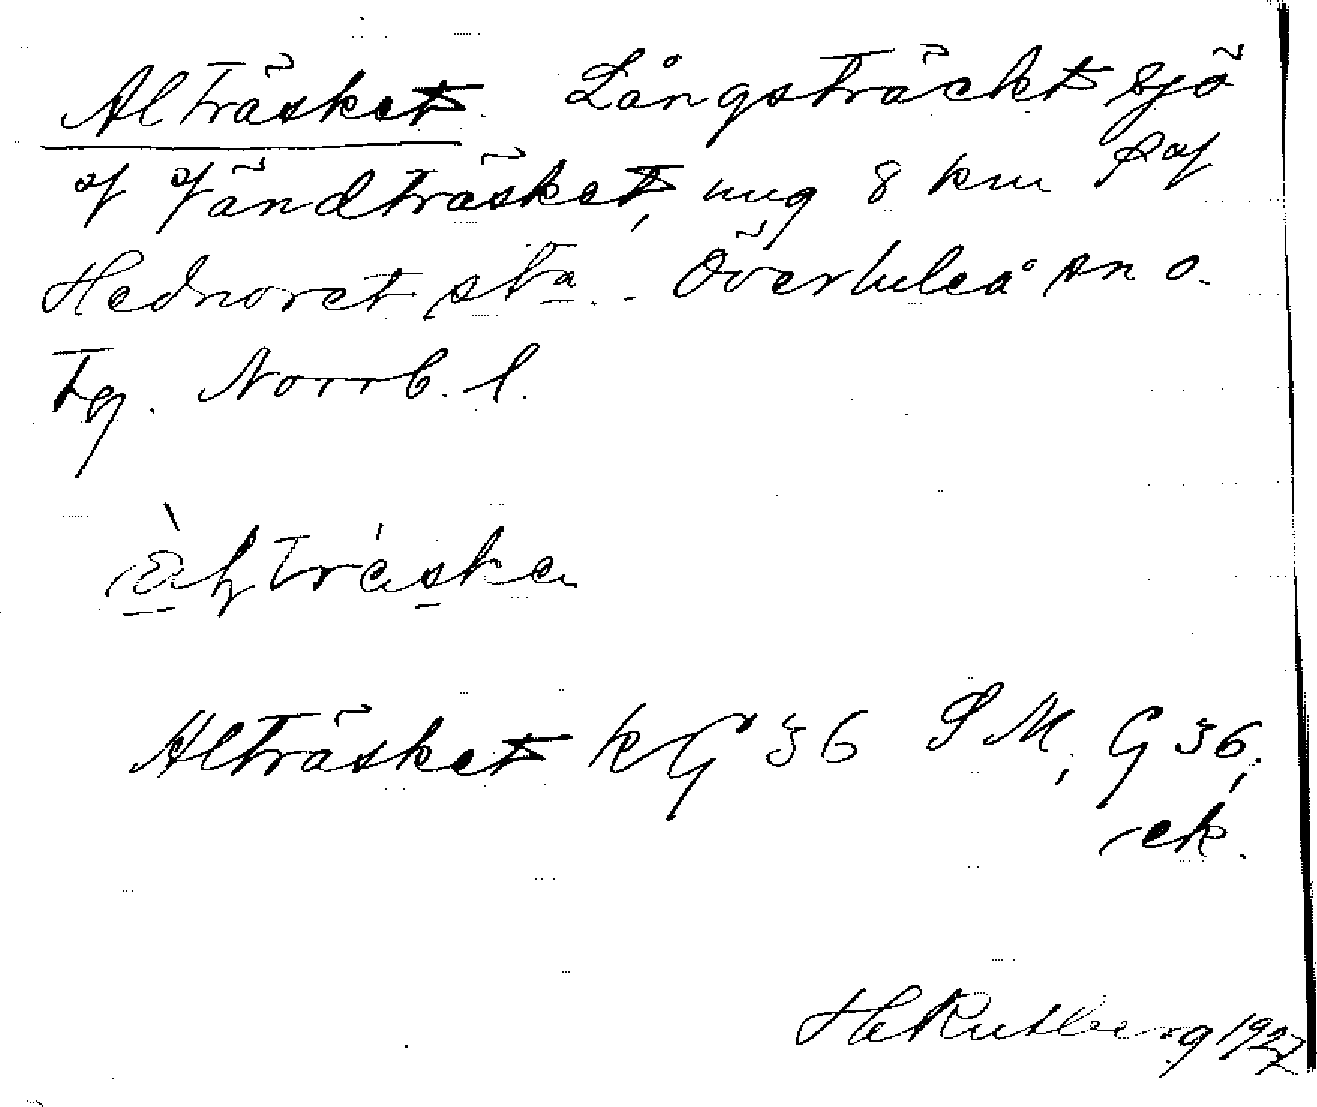 Alträsket. Långsträckt sjö
af Tändträsket, ung 8 km
Hednoret st:a. Överluleå sn o.
tg. Norrb. l.
träska
Alträsket kG 36 SM, G 36,
ek.
H Rutberg 1927